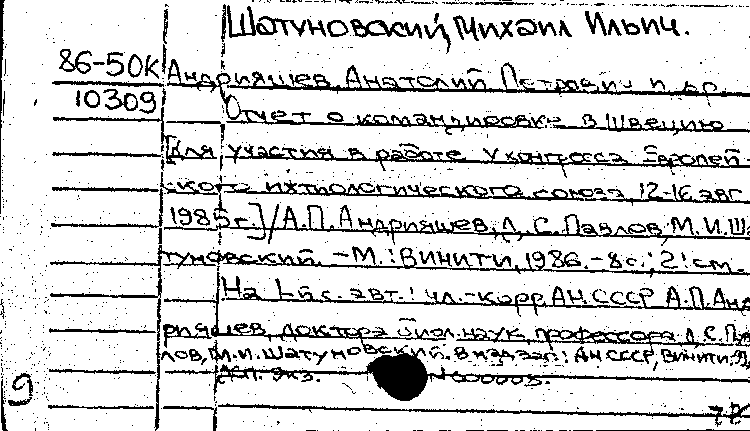 Шатуновский, Михаил Ильич.
86-50К Андрияшев, Анатолий Петрович и др.
10309 Отчет о командировке в Швецию
[для участия в работе V конгресса Европей-
ского ихтиологического союза, 12-16 авг.
1985г.]/А.П.Андрияшев, Д.С.Павлов, М.И.Ша
туновский. -М.: ВИНИТИ, 1986. -8с.; 21см.-
На 1-й с. авт.: чл.-корр. АН СССР А.П.Анд
рияшев, доктора биол.наук, профессора Д.С.Пав
лов, М.И.Шатуновский. В надзаг.: АН СССР, ВИНИТИ,
Экз. N600005.
9